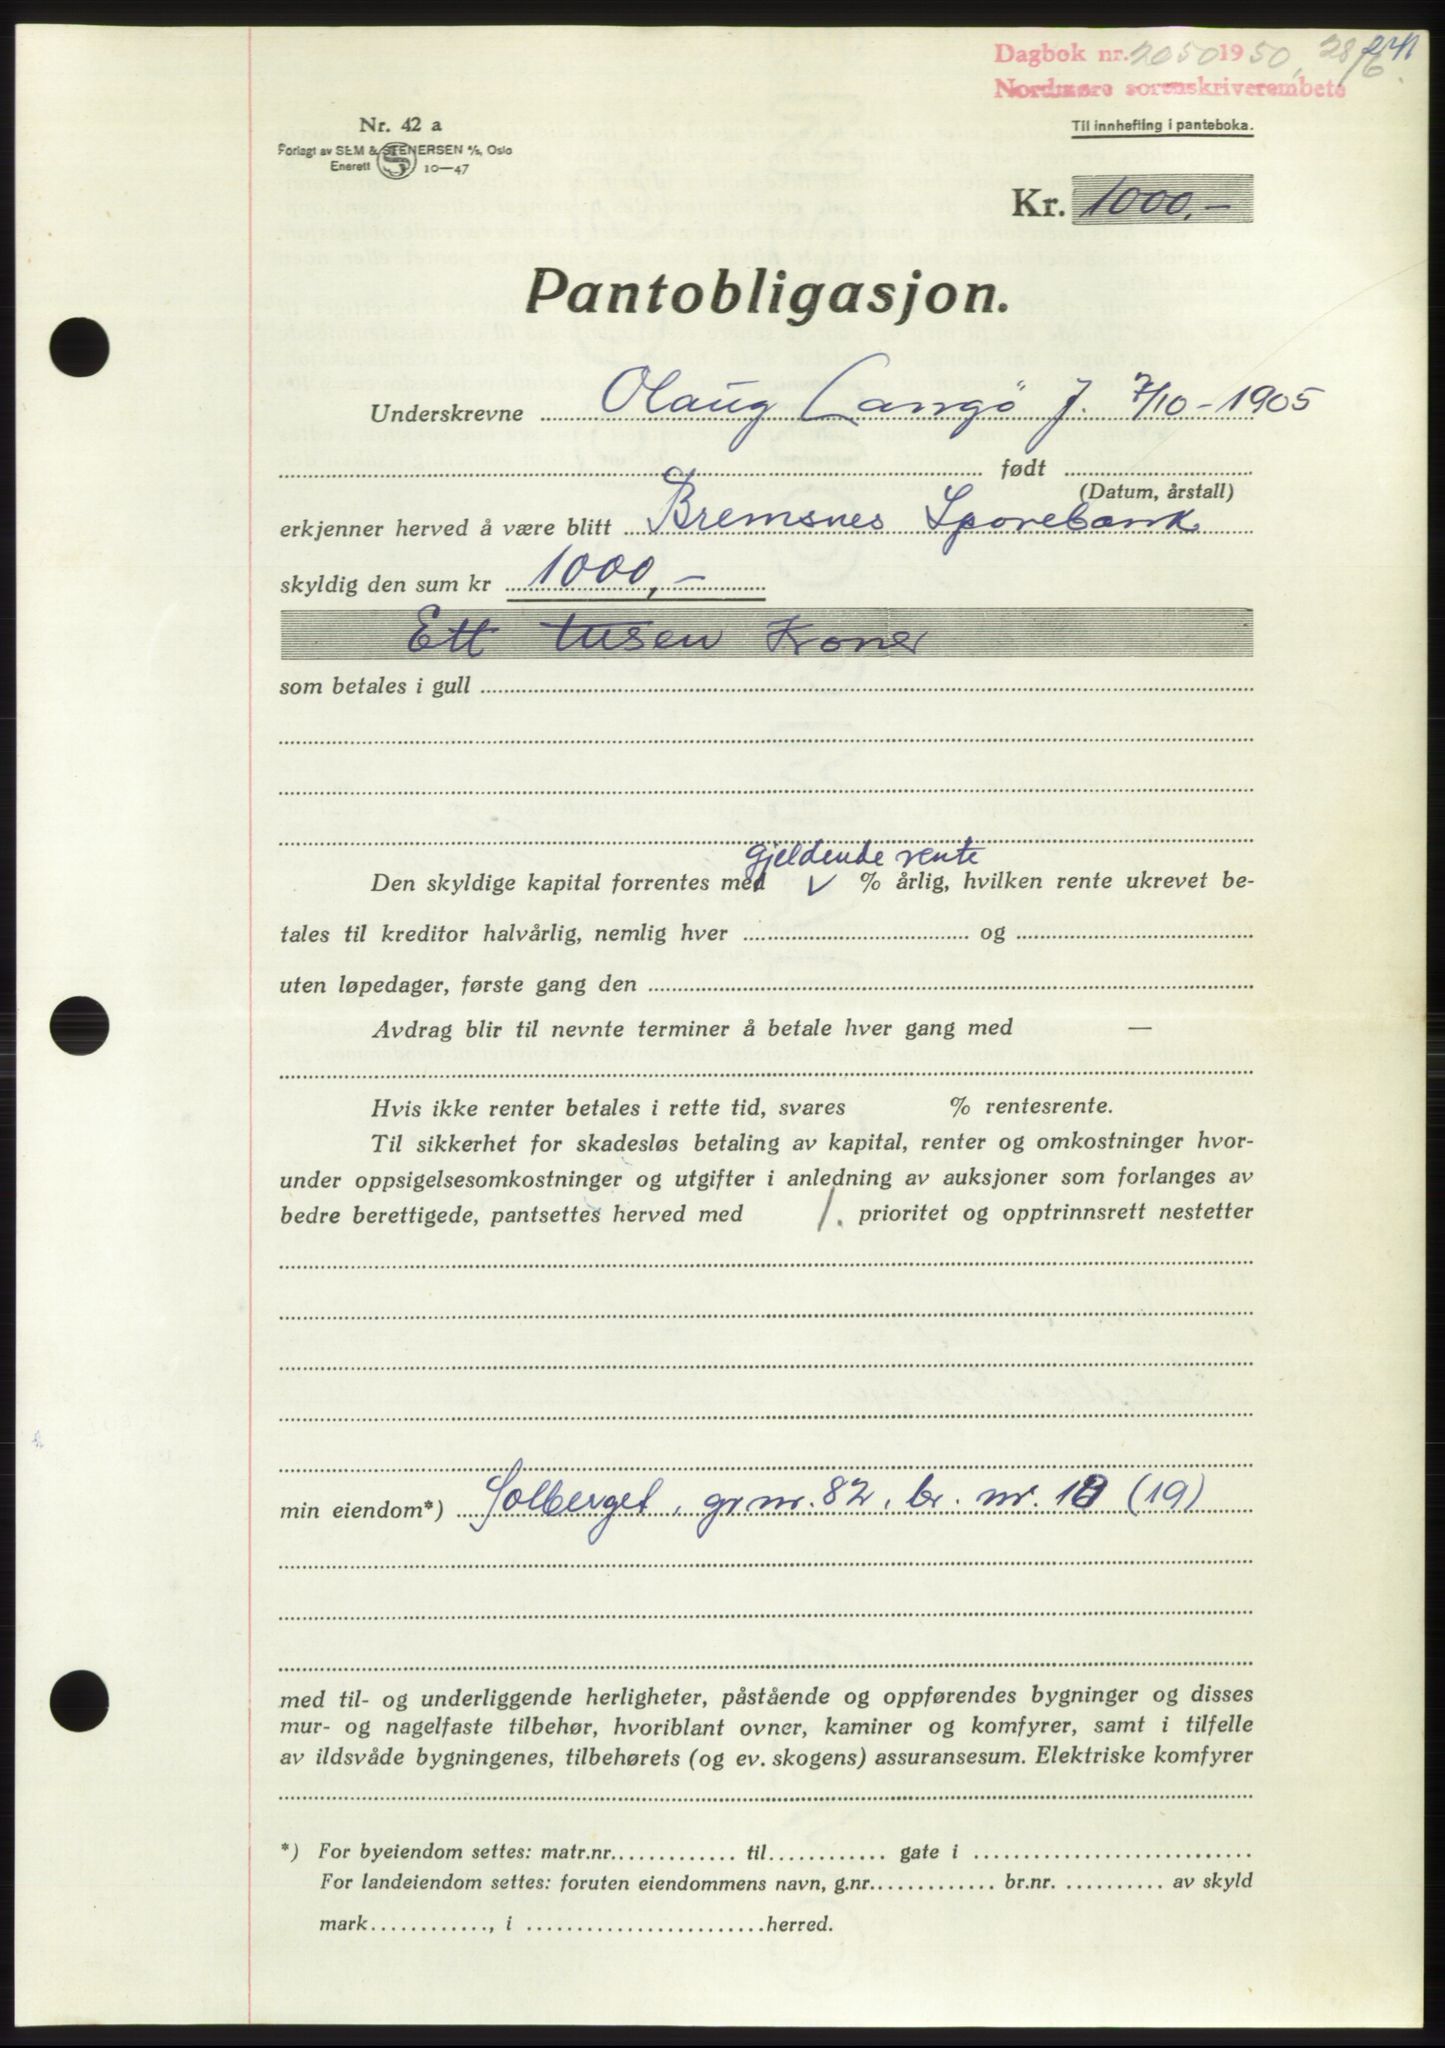 Dagbok nr. 2050 1950, 28/6. 241
Nordmøre sorenskriverembete
Nr. 42 a
Forlagt av SEM & STENERSEN A/S, Oslo
Enerett S 10—47
Til innhefting i panteboka.
Kr. 1000,-
Pantobligasjon.
Underskrevne Olaug Langö f. 7/10 - 1905
født
(Datum, årstall)
erkjenner herved å være blitt Bremsnes Sparebank
skyldig den sum kr 1000,-
Ett tusen Kroner
som betales i gull
gjeldende rente
Den skyldige kapital forrentes med √ % årlig, hvilken rente ukrevet be-
tales til kreditor halvårlig, nemlig hver og
uten løpedager, første gang den
Avdrag blir til nevnte terminer å betale hver gang med —
Hvis ikke renter betales i rette tid, svares % rentesrente.
Til sikkerhet for skadesløs betaling av kapital, renter og omkostninger hvor-
under oppsigelsesomkostninger og utgifter i anledning av auksjoner som forlanges av
bedre berettigede, pantsettes herved med 1. prioritet og opptrinnsrett nestetter
min eiendom*) Solberget, gr.nr. 82, br. nr. (19)
med til- og underliggende herligheter, påstående og oppførendes bygninger og disses
mur- og nagelfaste tilbehør, hvoriblant ovner, kaminer og komfyrer, samt i tilfelle
av ildsvåde bygningenes, tilbehørets (og ev. skogens) assuransesum. Elektriske komfyrer
*) For byeiendom settes: matr.nr. til gate i
For landeiendom settes: foruten eiendommens navn, g.nr. br.nr. av skyld
mark , i herred.